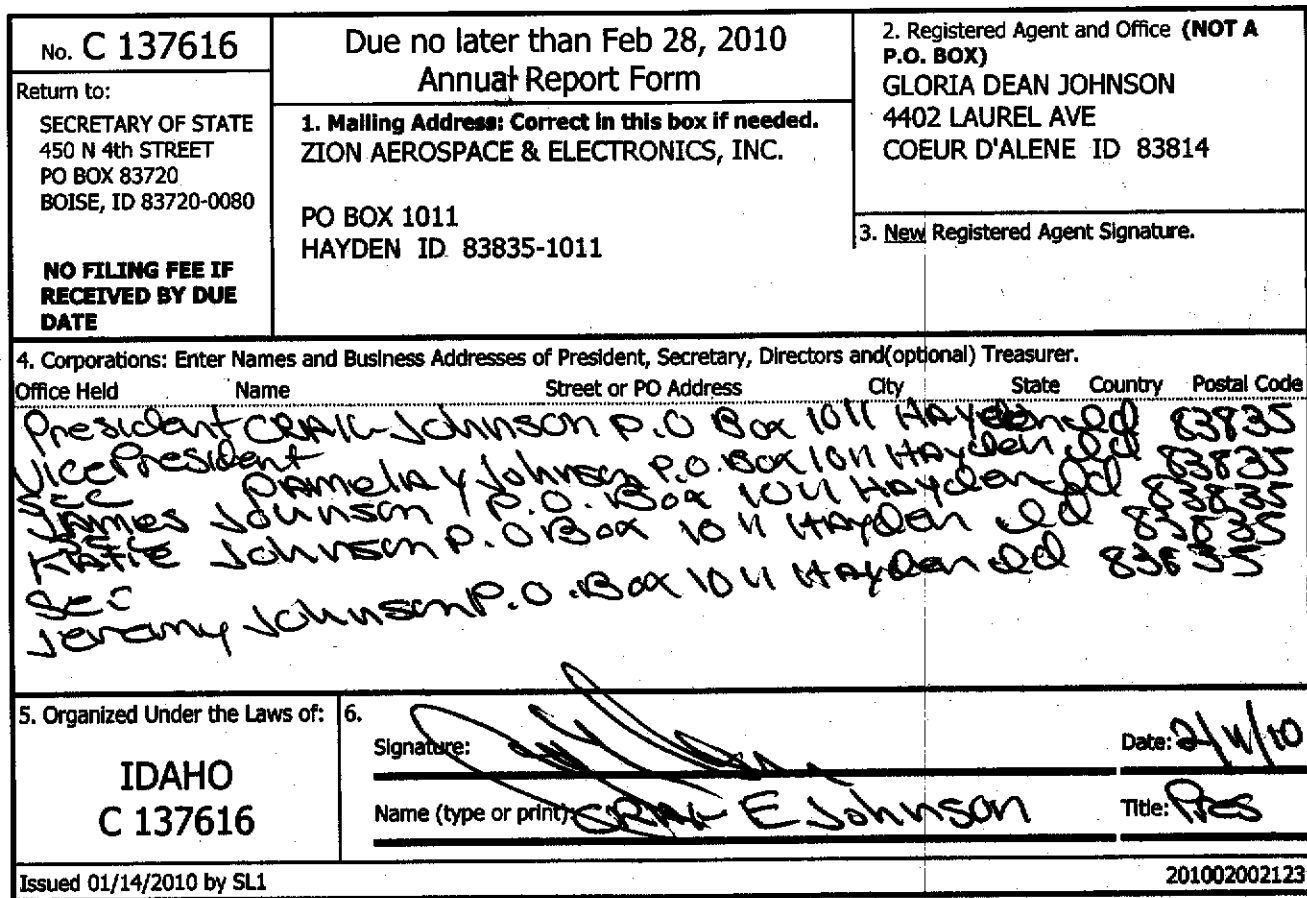 No. C 137616
Return to:
SECRETARY OF STATE
450 N 4th STREET
PO BOX 83720
BOISE, ID 83720-0080
NO FILING FEE IF
RECEIVED BY DUE
DATE
Due no later than Feb 28, 2010
Annual Report Form
1. Mailing Address: Correct in this box if needed.
ZION AEROSPACE & ELECTRONICS, INC.
PO BOX 1011
HAYDEN ID 83835-1011
2. Registered Agent and Office (NOT A
P.O. BOX)
GLORIA DEAN JOHNSON
4402 LAUREL AVE
COEUR D'ALENE ID 83814
3. New Registered Agent Signature.
4. Corporations: Enter Names and Business Addresses of President, Secretary, Directors and(optional) Treasurer.
Office Held Name Street or PO Address City State Country Postal Code
President CRAIG Johnson P.O Box 1011 HAyden Id 83835
Vice President
PAmelA Y Johnson P.O. Box 1011 HAyden Id 83835
Sec
JAmes Johnson P.O. Box 1011 HAyden Id 83835
KAtiE Johnson P.O Box 1011 HAyden Id 83835
Sec
Jeramy Johnson P.O. Box 1011 HAyden Id 83835
5. Organized Under the Laws of:
IDAHO
C 137616
6.
Signature:
Date: 2/11/10
Name (type or print): CRAIG E Johnson
Title: Pres
Issued 01/14/2010 by SL1
201002002123